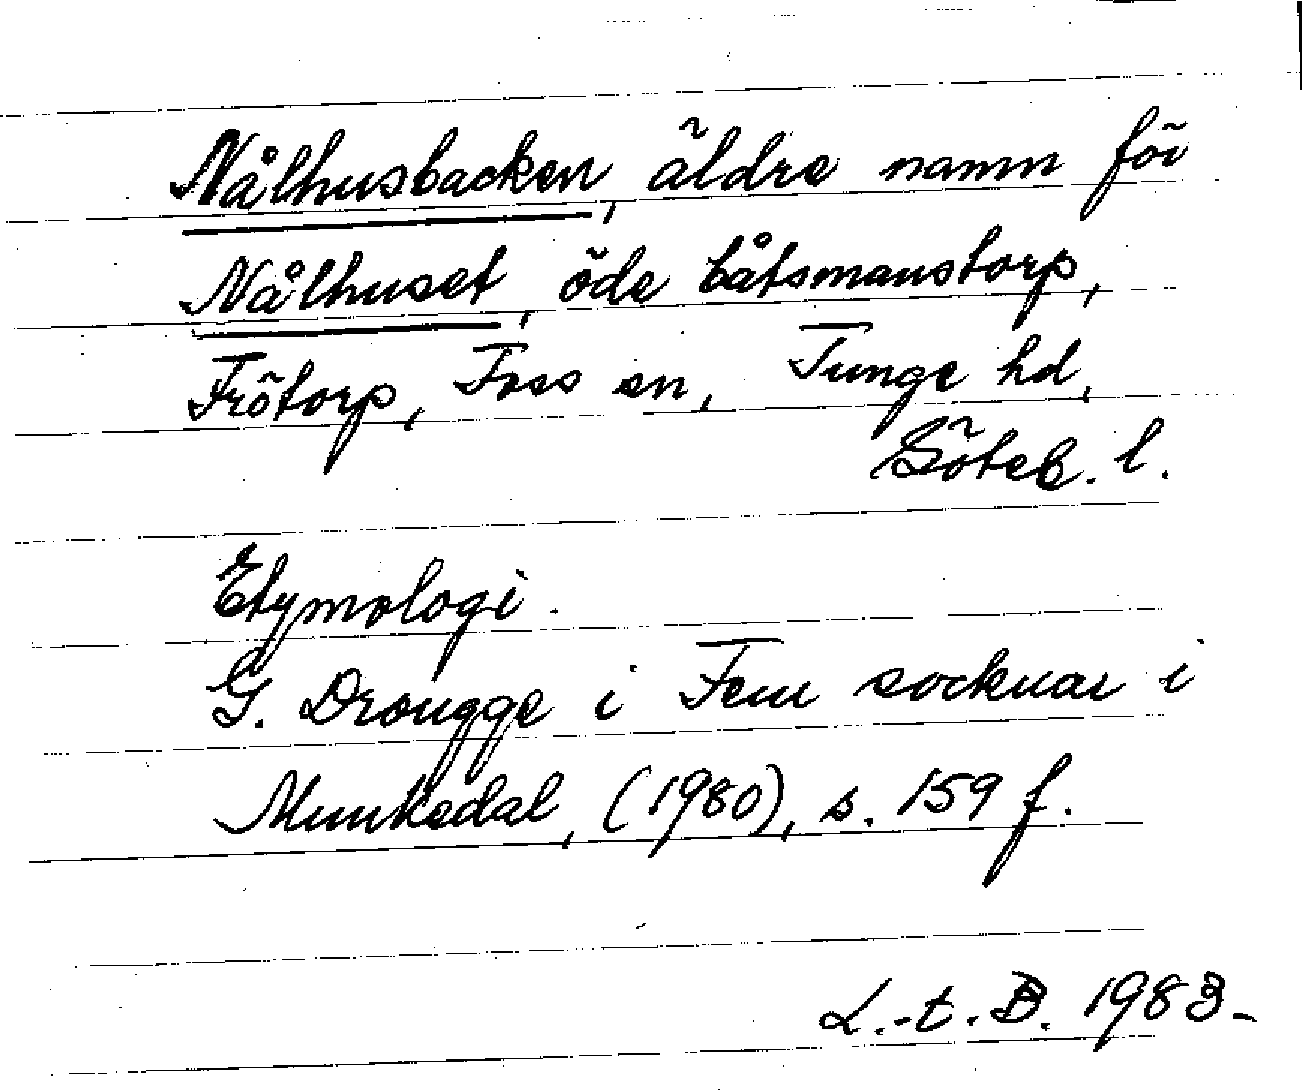 Nålhusbacken, äldre namn för
Nålhuset, öde båtsmanstorp,
Frötorp, Foss sn, Tunge hd,
Göteb. l.
Etymologi.
G. Drougge i Fem socknar i
Munkedal, (1980), s. 159 f.
L.-t. B. 1983-